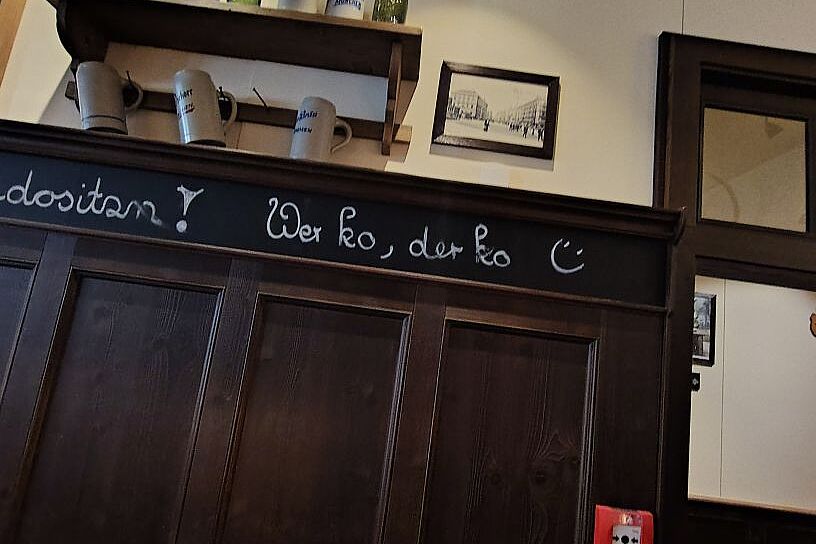 dositzn! Wer ko, der ko